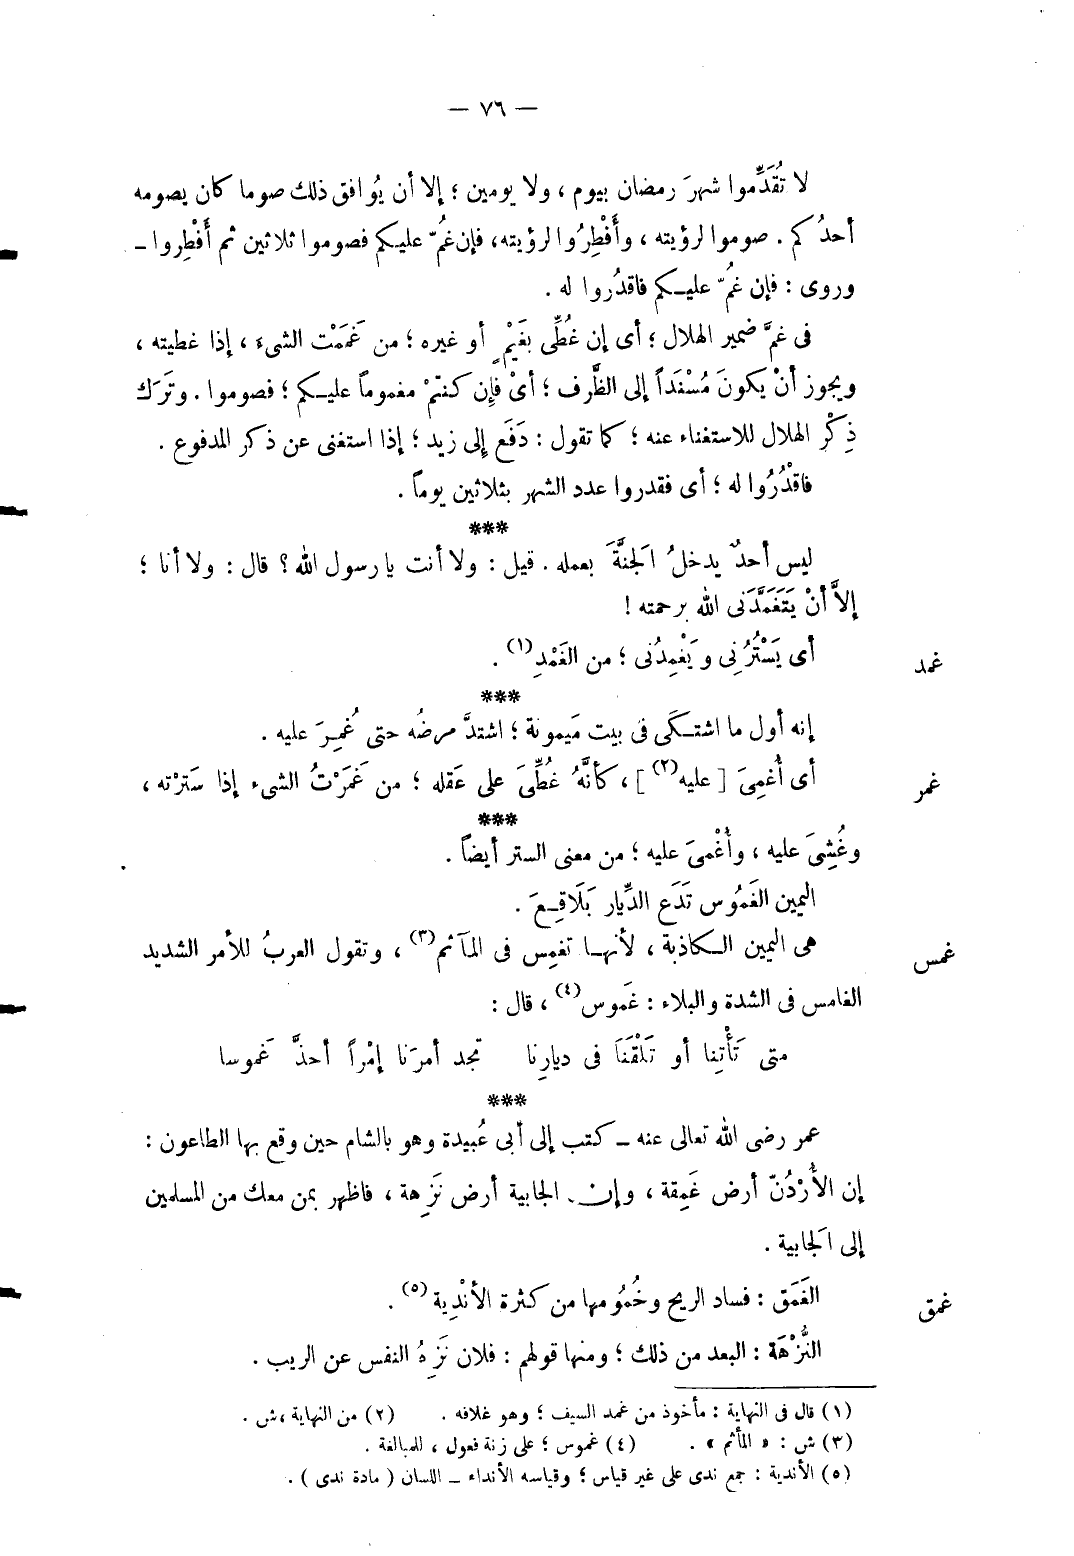 — ٧٦ —
لا تُقَدِّموا شهرَ رمضان بيوم ، ولا يومين ؛ إلا أن يُوافق ذلك صوما كان يصومه
أحدُكم . صوموا لرؤيته ، وأَفْطِرُوا لرؤيته، فإن غُمّ عليكم فصوموا ثلاثين ثم أَفْطِروا –
وروى : فإن غُمّ عليكم فاقدُروا له .
فى غمَّ ضمير الهلال ؛ أى إن غُطِّى بغَيْمٍ أو غيره ؛ من غَمَمْت الشىء ، إذا غطيته ،
ويجوز أنْ يكونَ مُسْنَداً إلى الظَّرف ؛ أىْ فإن كنتمْ مغموماً عليكم ؛ فصوموا . وتَرَك
ذِكْر الهلال للاستغناء عنه ؛ كما تقول : دَفَع إلى زيد ؛ إذا استغنى عن ذكر المدفوع .
فاقْدُرُوا له ؛ أى فقدروا عدد الشهر بثلاثين يوماً .
***
ليس أحدٌ يدخلُ الجنةَّ بعمله . قيل : ولا أنت يا رسول الله ؟ قال : ولا أنا ؛
إلاَّ أنْ يَتَغَمَّدَنى الله برحمته !
غمد أى يَسْتُرُنِى ويَغْمِدُنى ؛ من الغَمْدِ(١) .
***
إنه أول ما اشتكَى فى بيت مَيمونة ؛ اشتدَّ مرضُه حتى غُمِرَ عليه .
غمر أى أُغمِىَ [ عليه(٢) ] ، كأنَّهُ غُطِّىَ على عَقله ؛ من غَمَرْتُ الشىء إذا سَترْته ،
***
وغُشِىَ عليه ، وأُغْمىَ عليه ؛ من معنى الستر أيضاً .
اليمين الغَمُوس تَدَع الدِّيار بَلَاقِعَ .
غمس هى اليمين الكاذبة ، لأنها تغمِس فى المآثم(٣) ، وتقول العربُ للأمر الشديد
الغامس فى الشدة والبلاء : غَموس(٤) ، قال :
متى تَأْتِنا أو تَلْقَنَا فى ديارِنا تجد أمرَنا إمْراً أحذَّ غَموسا
***
عمر رضى الله تعالى عنه – كتب إلى أبى عُبيدة وهو بالشام حين وقع بها الطاعون :
إن الأُرْدُنّ أرض غَمِقة ، وإن الجابية أرض نَزِهة ، فاظهر بمن معك من المسلمين
إلى الجَابية .
غمق الغَمَق : فساد الريح وخُمُومها من كثرة الأنْدِية(٥) .
النُّزْهَة : البعد من ذلك ؛ ومنها قولهم : فلان نَزِهُ النفس عن الريب .
(١) قال فى النهاية : مأخوذ من غمد السيف ؛ وهو غلافه . (٢) من النهاية ،ش .
(٣) ش : « المأثم » . (٤) غموس ؛ على زنة فعول ، للمبالغة .
(٥) الأندية : جمع ندى على غير قياس ؛ وقياسه الأنداء – اللسان ( مادة ندى ) .